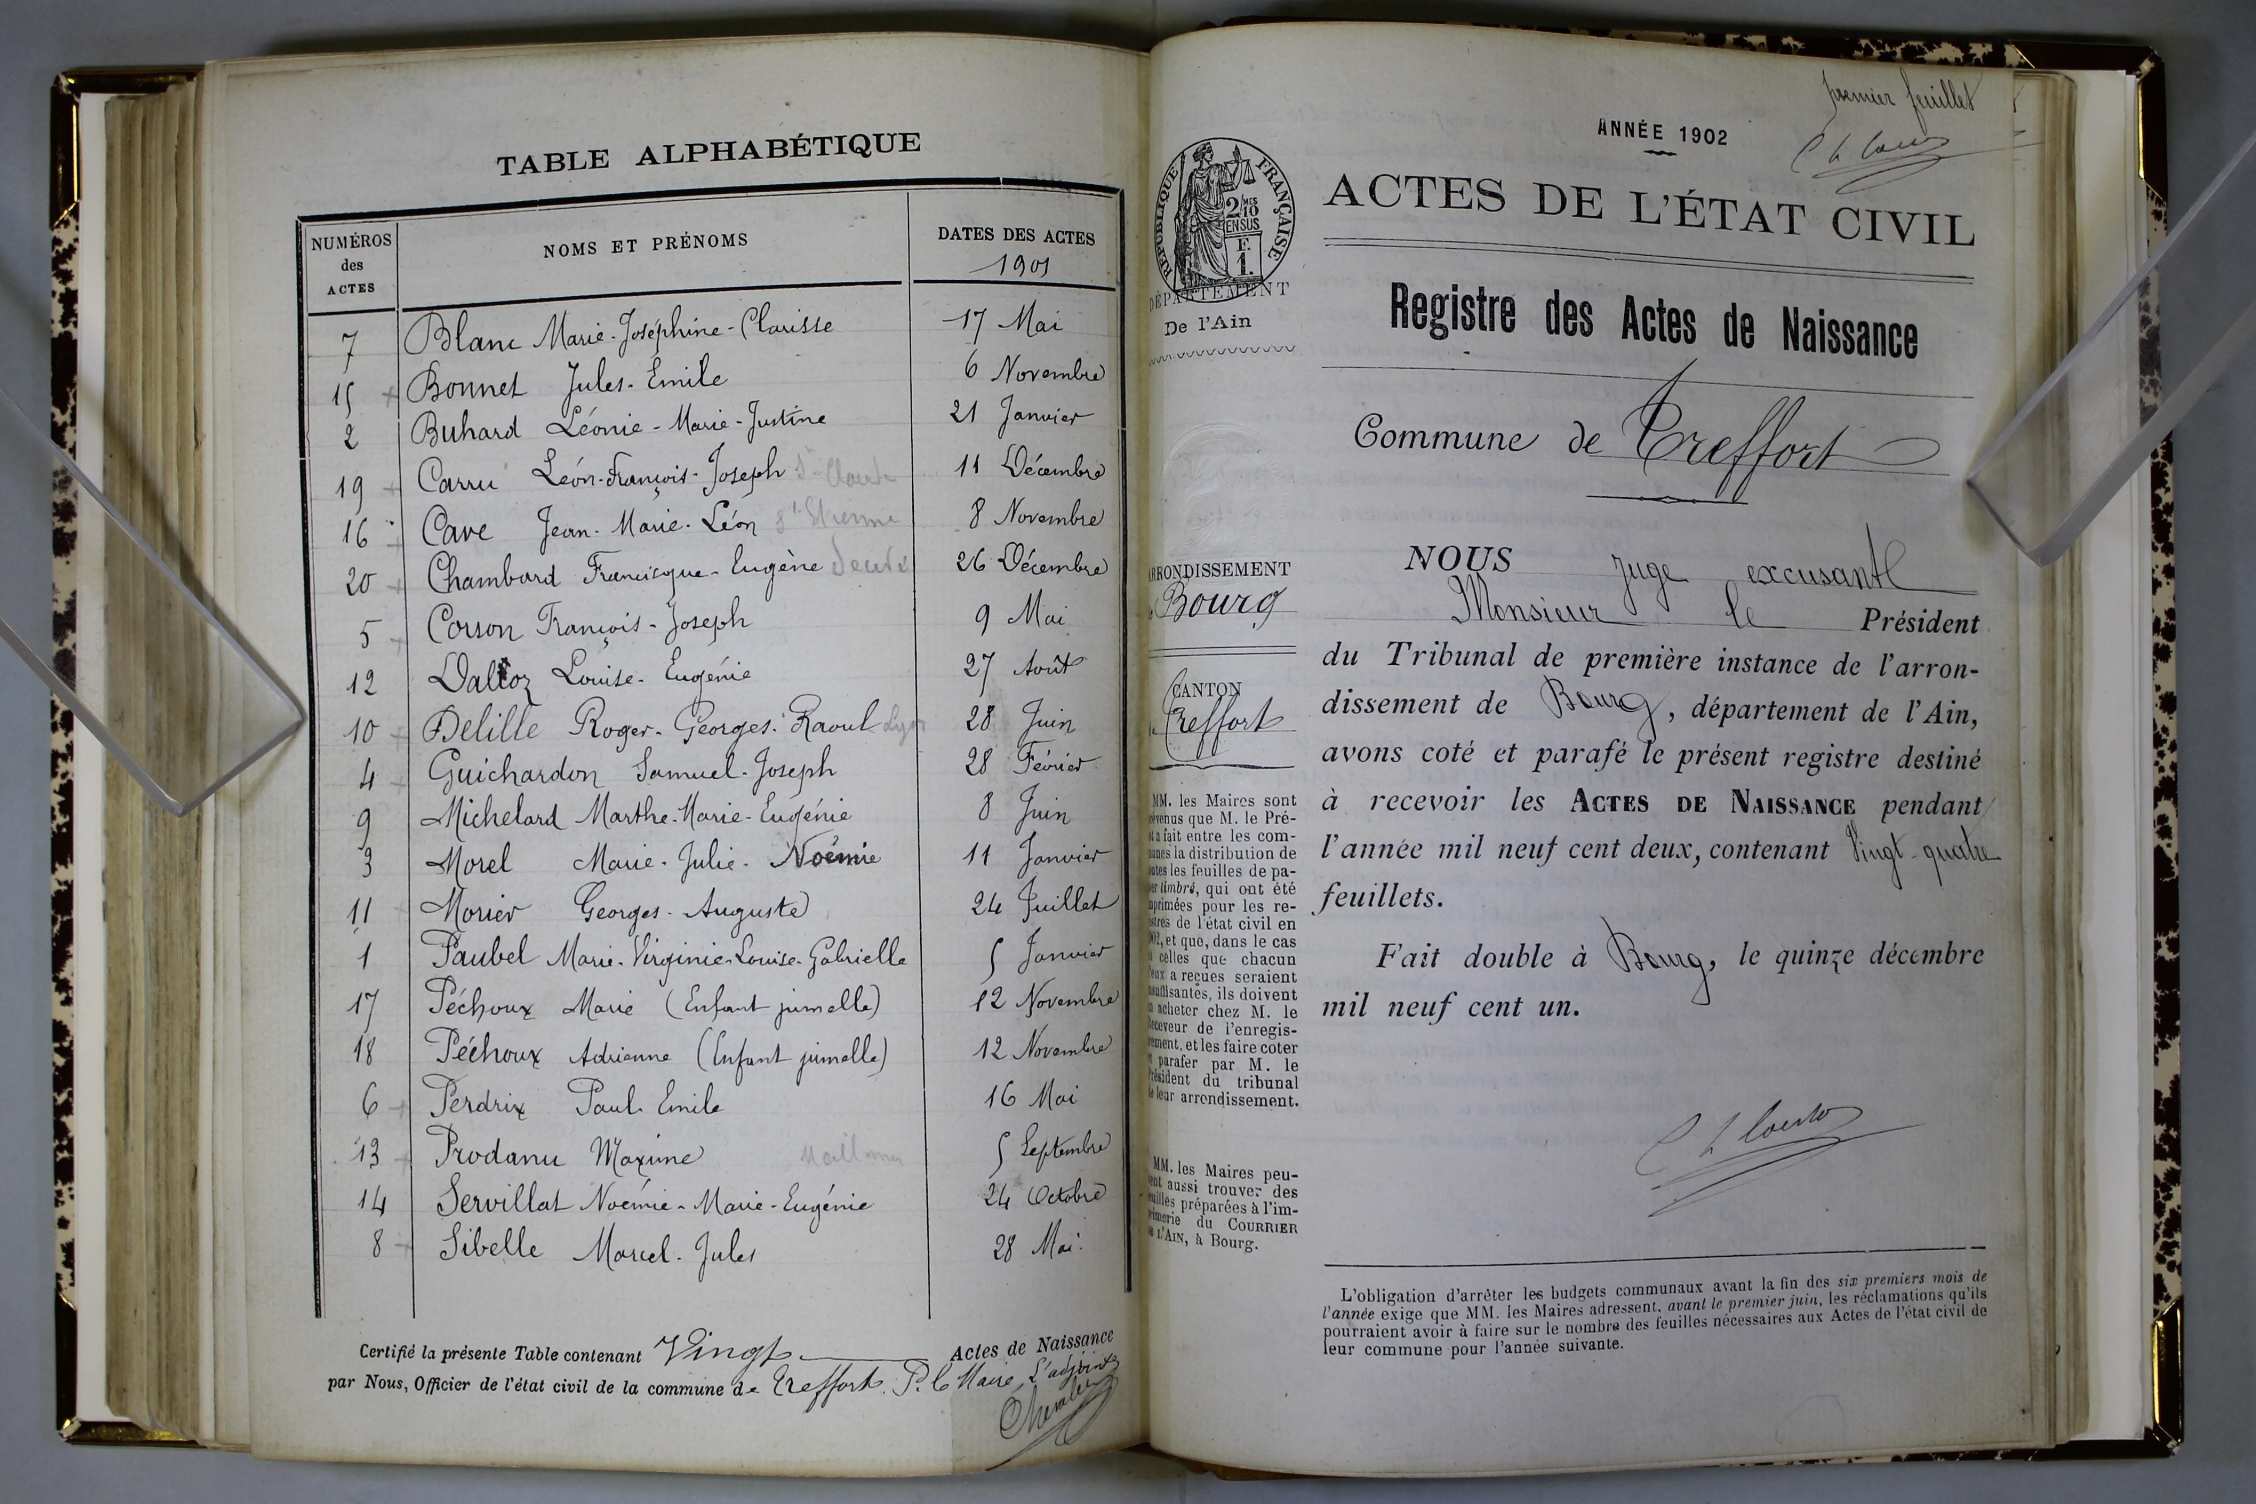 TABLE ALPHABÉTIQUE
NUMÉROS des ACTES
NOMS ET PRÉNOMS
DATES DES ACTES
1901
7 Blanc Marie-Joséphine-Clarisse 17 Mai
15 Bonnet Jules-Emile 6 Novembre
2 Buhard Léonie-Marie-Justine 21 Janvier
19 Carru Léon-François-Joseph St-Claude 11 Décembre
16 Cave Jean-Marie-Léon St Etienne 8 Novembre
20 Chambard Francisque-Eugène 26 Décembre
5 Corson François-Joseph 9 Mai
12 Dalloz Louise-Eugénie 27 Août
10 Delille Roger-Georges-Raoul Lyon 28 Juin
4 Guichardon Samuel-Joseph 28 Février
9 Michelard Marthe-Marie-Eugénie 8 Juin
3 Morel Marie-Julie-Noémie 11 Janvier
11 Morier Georges-Auguste 24 Juillet
1 Paubel Marie-Virginie-Louise-Gabrielle 5 Janvier
17 Péchoux Marie (Enfant jumelle) 12 Novembre
18 Péchoux Adrienne (Enfant jumelle) 12 Novembre
6 Perdrix Paul-Emile 16 Mai
13 Prodanu Maxime 5 Septembre
14 Servillat Noémie-Marie-Eugénie 24 Octobre
8 Sibelle Marcel-Jules 28 Mai
Certifié la présente Table contenant Vingt Actes de Naissance
par Nous, Officier de l'état civil de la commune de Treffort. P. le Maire, L'adjoint
premier feuillet
ANNÉE 1902
RÉPUBLIQUE FRANÇAISE
2/MES 10
EN SUS
F.
1.
DÉPARTEMENT
De l'Ain
ACTES DE L'ÉTAT CIVIL
Registre des Actes de Naissance
Commune de Treffort
ARRONDISSEMENT
Bourg
CANTON
de Treffort
MM. les Maires sont
prévenus que M. le Pré-
fet a fait entre les com-
munes la distribution de
toutes les feuilles de pa-
pier timbré, qui ont été
imprimées pour les re-
gistres de l'état civil en
1902, et que, dans le cas
où celles que chacun
d'eux a reçues seraient
insuffisantes, ils doivent
en acheter chez M. le
Receveur de l'enregis-
trement, et les faire coter
et parafer par M. le
Président du tribunal
de leur arrondissement.
MM. les Maires peu-
vent aussi trouver des
feuilles préparées à l'im-
primerie du COURRIER
DE L'AIN, à Bourg.
NOUS juge excusant
Monsieur le Président
du Tribunal de première instance de l'arron-
dissement de Bourg, département de l'Ain,
avons coté et parafé le présent registre destiné
à recevoir les ACTES DE NAISSANCE pendant
l'année mil neuf cent deux, contenant Vingt-quatre
feuillets.
Fait double à Bourg, le quinze décembre
mil neuf cent un.
L'obligation d'arrêter les budgets communaux avant la fin des six premiers mois de
l'année exige que MM. les Maires adressent, avant le premier juin, les réclamations qu'ils
pourraient avoir à faire sur le nombre des feuilles nécessaires aux Actes de l'état civil de
leur commune pour l'année suivante.